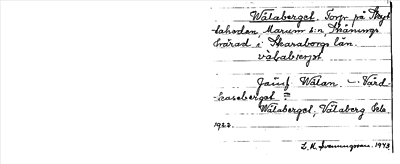 Wålaberget. Torp på Skyt
lahoden, Marum s:n, Skånings
härad i Skaraborgs län.
våbabærjet
Jämf. Wålan. – Vård-
kaseberget =
Wålaberget, Valaberg
1922.
L. M. Svenungsson. 1943